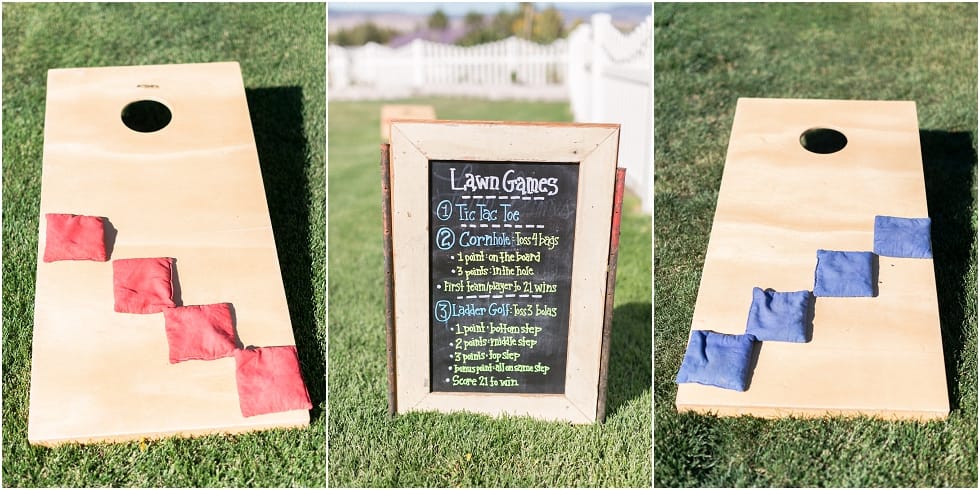 Lawn Games
① Tic Tac Toe
② Cornhole: Toss 4 bags
• 1 point: on the board
• 3 points: in the hole
• First team/player to 21 wins
③ Ladder Golf: Toss 3 bolas
• 1 point: bottom step
• 2 points: middle step
• 3 points: top step
• bonus point: all on same step
• Score 21 to win